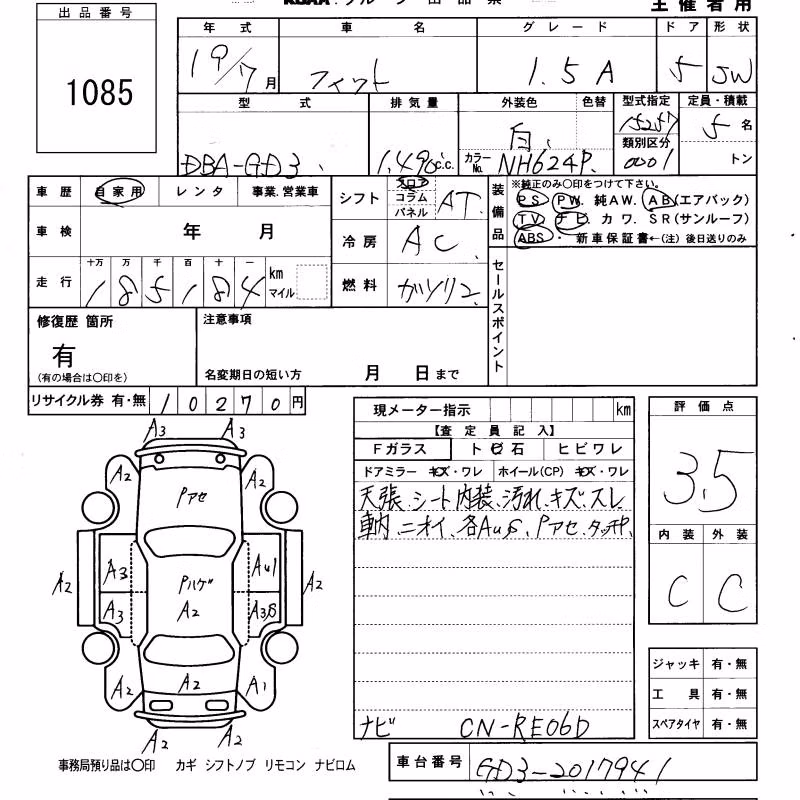 主催者用
出品番号
1085
年式 車名 グレード ドア 形状
19/7月 フィット 1.5A 5 5W
型式 排気量 外装色 色替 型式指定 定員・積載
DBA-GD3 1,490c.c. 白 カラーNo. NH624P. 15257 5名
類別区分 0001 トン
車歴 自家用 レンタ 事業.営業車
シフト フロア コラム パネル AT
装備品 ※純正のみ○印をつけて下さい。
PS PW. 純AW. AB(エアバック)
TV ナビ. カワ. SR(サンルーフ)
ABS・新車保証書←(注)後日送りのみ
車検 年 月
冷房 AC
走行 十万 万 千 百 十 一 km マイル
1 8 5 1 8 4
燃料 ガソリン
セールスポイント
修復歴 箇所
有
(有の場合は○印を)
注意事項
名変期日の短い方 月 日まで
リサイクル券 有・無 10270円
現メーター指示 km
【査定員記入】
Fガラス トビ石 ヒビワレ
ドアミラー キズ・ワレ ホイール(CP) キズ・ワレ
天張、シート内装、汚れ、キズ、スレ
車内、ニオイ、各AuS、Pアセ、タッチ中、
ナビ CN-RE06D
評価点
3.5
内装 外装
C C
ジャッキ 有・無
工具 有・無
スペアタイヤ 有・無
A3 A3
A2 Pアセ A2
A3 Pハゲ Au1
A2 A3 A2 A3S A2
A2 A2 A1
A2 A2
事務局預り品は○印 カギ シフトノブ リモコン ナビロム
車台番号 GD3-2017941